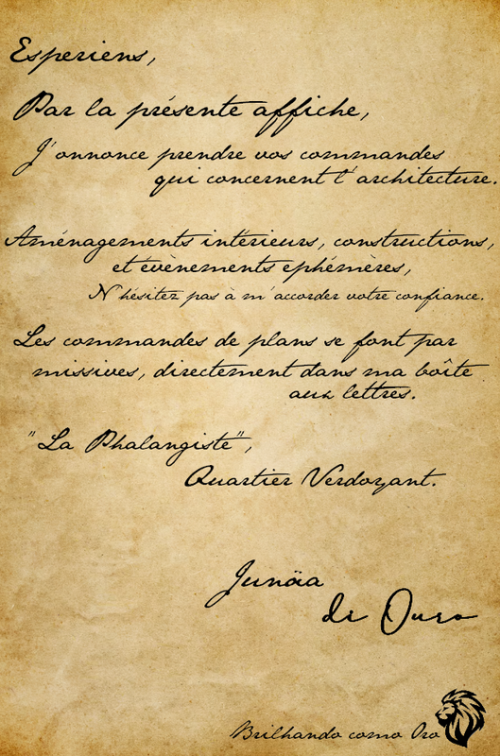 Esperiens,
Par la présente affiche,
J'annonce prendre vos commandes
qui concernent l'architecture.
Aménagements intérieurs, constructions,
et évènements éphémères,
N'hésitez pas à m'accorder votre confiance.
Les commandes de plans se font par
missives, directement dans ma boîte
aux lettres.
"La Phalangiste",
Quartier Verdoyant.
Junäa
di Ouro
Brilhando como Oro